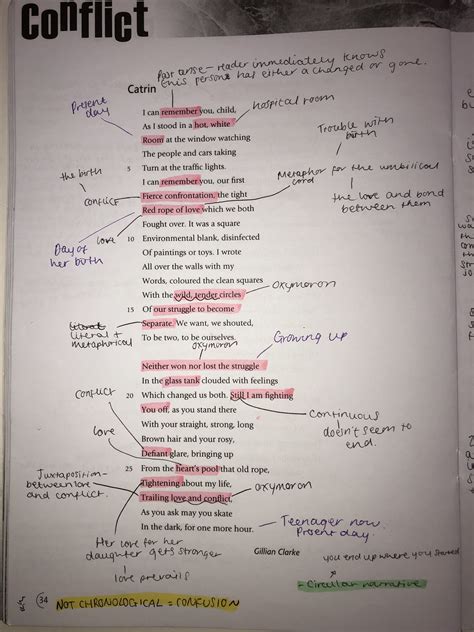 Conflict
Past tense - reader immediately knows
this person has either a changed or gone.
Catrin
Present
day
I can remember you, child,
hospital room
As I stood in a hot, white
Room at the window watching
Trouble with
birth
The people and cars taking
5 Turn at the traffic lights.
the birth
I can remember you, our first
Metaphor for the umbilical
cord
conflict
Fierce confrontation, the tight
the love and bond
between them
Red rope of love which we both
love
Day of
her birth
Fought over. It was a square
10 Environmental blank, disinfected
Of paintings or toys. I wrote
All over the walls with my
Words, coloured the clean squares
oxymoron
With the wild, tender circles
15 Of our struggle to become
literal +
metaphorical
Separate. We want, we shouted,
To be two, to be ourselves.
oxymoron
Growing up
Neither won nor lost the struggle
In the glass tank clouded with feelings
conflict
20 Which changed us both. Still I am fighting
You off, as you stand there
Continuous
doesn't seem to
end.
love
With your straight, strong, long
Brown hair and your rosy,
Defiant glare, bringing up
Juxtaposition -
between love
and conflict.
25 From the heart's pool that old rope,
Tightening about my life,
oxymoron
Trailing love and conflict,
As you ask may you skate
In the dark, for one more hour.
Teenager now.
Present day.
Her love for her
daughter gets stronger
Gillian Clarke
you end up where you started
love prevails
- Circular narrative
34
NOT CHRONOLOGICAL = CONFUSION